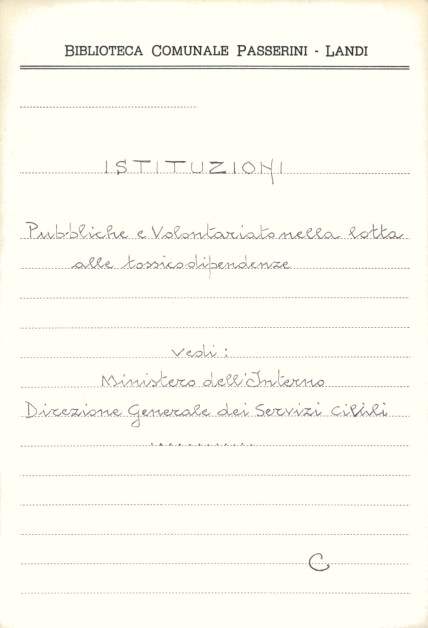 BIBLIOTECA COMUNALE PASSERINI - LANDI
ISTITUZIONI
Pubbliche e Volontariato nella lotta
alle tossicodipendenze
vedi :
Ministero dell'Interno
Direzione Generale dei Servizi Civili
............
C